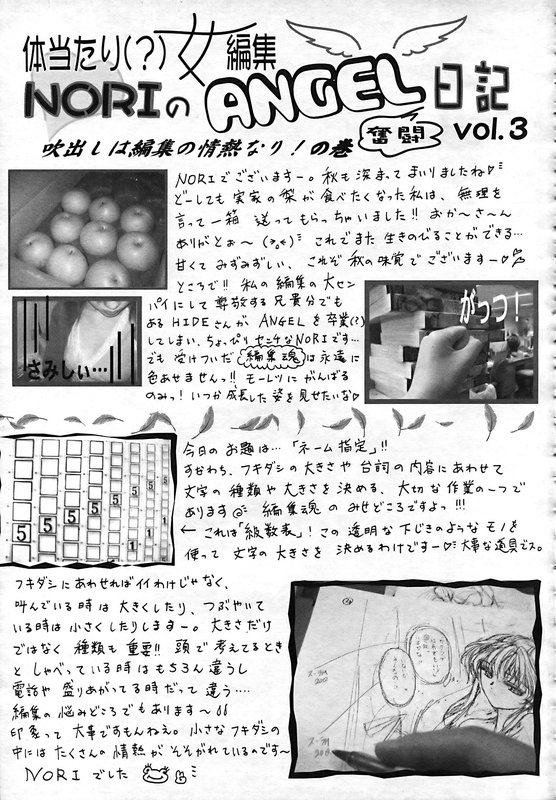 体当たり(?)女編集
NORIのANGEL日記
奮闘
vol.3
吹出しは編集の情熱なり!の巻
NORIでございますー。秋も深まってまいりましたね♡
どーしても実家の梨が食べたくなった私は、無理を
言って一箱送ってもらっちゃいました!!おか〜さ〜ん
ありがとぉ〜 これでまた生きのびることができる…
甘くてみずみずしい、これぞ秋の味覚でございますー♡
ところで!!私の編集の大セン
パイにして尊敬する兄貴分でも
あるHIDEさんがANGELを卒業(?)
してしまい、ちょっぴりセンチなNORIです…
でも受けついだ編集魂は永遠に
色あせませんっ!!モーレツにがんばる
のみっ!いつか成長した姿を見せたいな♡
さみしぃ…
がっつ!
今日のお題は…「ネーム指定」!!
すなわち、フキダシの大きさや台詞の内容にあわせて
文字の種類や大きさを決める、大切な作業の一つで
あります◎編集魂のみせどころですよっ!!!
←これは「級数表」!この透明な下じきのようなモノを
使って文字の大きさを決めるわけですー♡大事な道具でス。
5
5
5
5
5
5
5
1
1
1
フキダシにあわせればイイわけじゃなく、
叫んでいる時は大きくしたり、つぶやいて
いる時は小さくしたりしますー。大きさだけ
ではなく種類も重要!!頭で考えてるとき
としゃべっている時はもちろん違うし
電話や盛りあがってる時だって違う…。
編集の悩みどころでもあります〜
印象って大事ですもんねえ。小さなフキダシの
中にはたくさんの情熱がそそがれているのです〜
NORIでした